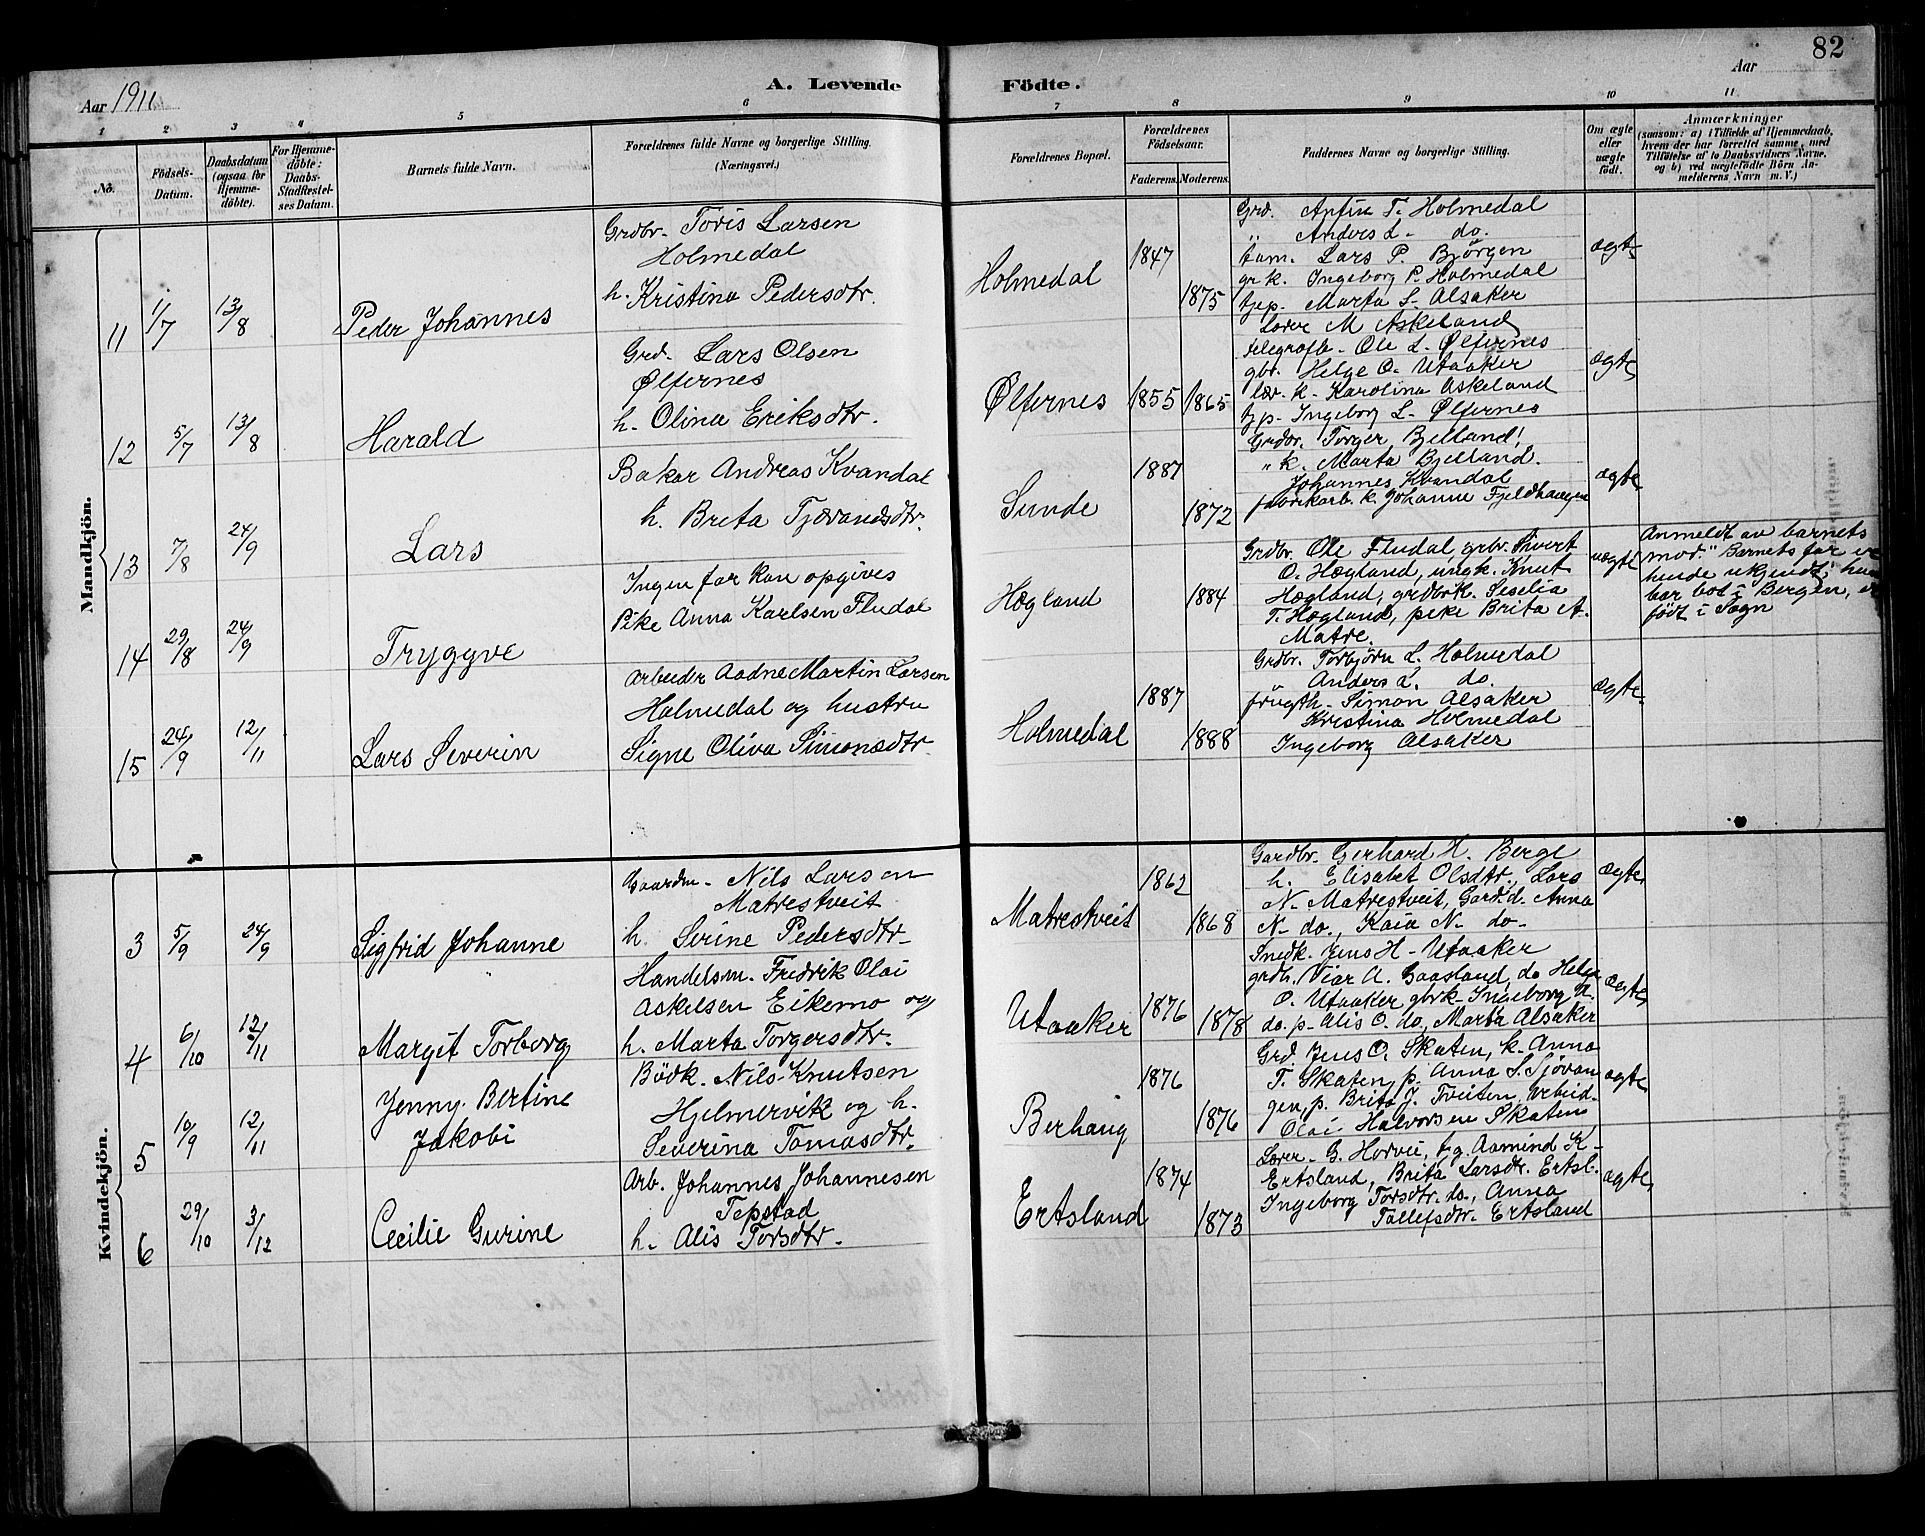 82
Aar 1911
A. Levende Födte.
Aar
1 2 3 4 5 6 7 8 9 10 11
No.
Födsels-
Datum.
Daabsdatum
(ogsaa for
Hjemme-
döbte).
For Hjemme-
döbte:
Daabs-
Stadfæstel-
ses Datum.
Barnets fulde Navn.
Forældrenes fulde Navne og borgerlige Stilling.
(Næringsvei.)
Forældrenes Bopæl.
Forældrenes
Födselsaar.
Faderens.
Moderens.
Faddernes Navne og borgerlige Stilling.
Om ægte
eller
uægte
født.
Anmærkninger
(saasom: a) i Tilfælde af Hjemmedaab,
hvem der har forrettet samme, med
Tilföielse af to Daabsvidners Navne,
og b) ved uægtefödte Börn An-
melderens Navn m. V.)
Mandkjön.
11 1/7 13/8 Peder Johannes
Grdbr. Toris Larsen
Holmedal
h. Kristina Pedersdtr.
Holmedal 1847 1875
Grd. Anfin T. Holmedal
" Anders L. do.
Lars P. Björgen
gr. k. Ingeborg P. Holmedal
Marta S. Alsaker
ægte
12 5/7 13/8 Harald
Grd. Lars Olsen
Ølfernes
h. Olina Eriksdtr.
Ølfernes 1855 1865
Lærer M Askeland
telegrafb. Ole L. Ølfernes
gbr. Helge O. Utaaker
lær. k. Karolina Askeland
Ingeborg L. Ølfernes
ægte
13 7/8 24/9 Lars
Baker Andreas Kvandal
h. Brita Tjærandsdtr.
Sunde 1887 1872
Grdbr. Torger Bjelland,
" k. Marta Bjelland.
Johannes Kvandal
fabrikarb. k. Johanne Fjeldhaugen
ægte
14 29/8 24/9 Trygyve
Ingen far kan opgives
Pike Anna Karlsen Fludal
Hægland 1884
Grdbr. Ole Fludal, grbr. Sivert
O. Hægland, ungk. Knut
Hægland, grdbrk. Seselia
T. Hægland, pike Brita A.
Matre.
uægte
Anmeldt av barnets
mor. "Barnets far er
hende ukjendt; han
har bot i Bergen, er
født i Sogn
15 24/9 12/11 Lars Severin
Arbeider Aadne Martin Larsen
Holmedal og hustru
Signe Oliva Simonsdtr.
Holmedal 1887 1888
Grdbr. Torbjörn L. Holmedal
" Anders L. do.
Simon Alsaker
Kristina Holmedal
Ingeborg Alsaker
ægte
Kvindekjön.
3 5/9 24/9 Sigfrid Johanne
Gaardm. Nils Larsen
Matrestveit
h. Serine Pedersdtr.
Matrestveit 1862 1868
Gardbr. Gerhard H. Berge
h. Elisabet Olsdtr., Lars
N. Matrestveit, Gard.d. Anna
N. do., Kaia N. do.
ægte
4 6/10 12/11 Margit Torborg
Handelsm. Fredrik Olai
Askilsen Eikemo og
h. Marta Torgersdtr.
Utaaker 1876 1878
Snedk. Jens H. Utaaker
grdb. Viar A. Gaasland, do Helge
O. Utaaker gbrk. Ingeborg A.
do. p. Alis O. do, Marta Alsaker
ægte
5 10/9 12/11 Jenny Bertine
Jakobi
Bödk. Nils Knutsen
Hjelmervik og h.
Severina Tomasdtr.
Berhaug 1876 1876
Grd. Jens O. Skaten, k. Anna
T. Skaten, p. Anna S. Sjövan-
gen, p. Brita J. Tveiten, arbeid.
Olai Halvorsen Skaten
ægte
6 29/10 3/12 Cecilie Gurine
Arb. Johannes Johannesen
Tepstad
h. Alis Torsdtr.
Ertsland 1874 1873
Lærer G. Horvei, Aamund K.
Ertsland, Brita Larsdtr. Ertsl.
Ingeborg Torsdtr. do., Anna
Tollefsdtr. Ertsland
ægte